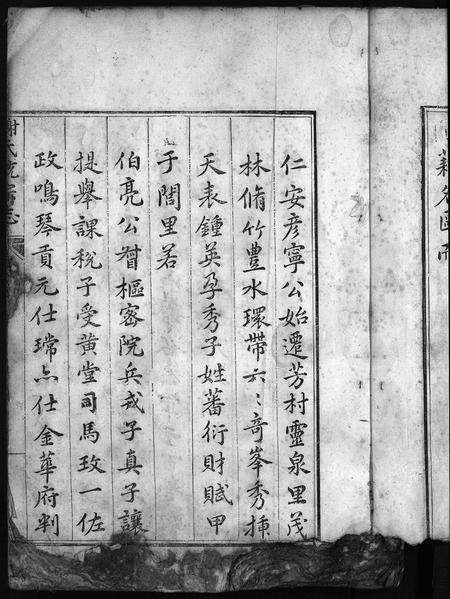 仁安彦寧公始遷芳村靈泉里茂
林脩竹豊水環帶六六竒峯秀挿
天表鍾英孕秀子姓蕃衍財賦甲
于閭里若
伯亮公贈樞密院兵戎子真子讓
提舉課稅子受黄堂司馬玫一佐
政鳴琴貢元仕瑺亦仕金華府判